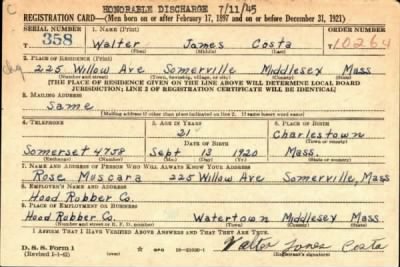 C HONORABLE DISCHARGE 7/11/45
REGISTRATION CARD—(Men born on or after February 17, 1897 and on or before December 31, 1921)
SERIAL NUMBER 1. NAME (Print) ORDER NUMBER
S 358 Walter James Costa T 10264
(First) (Middle) (Last)
2. PLACE OF RESIDENCE (Print)
225 Willow Ave Somerville Middlesex Mass
(Number and street) (Town, township, village, or city) (County) (State)
[THE PLACE OF RESIDENCE GIVEN ON THE LINE ABOVE WILL DETERMINE LOCAL BOARD
JURISDICTION; LINE 2 OF REGISTRATION CERTIFICATE WILL BE IDENTICAL]
3. MAILING ADDRESS
Same
[Mailing address if other than place indicated on line 2. If same insert word same]
4. TELEPHONE 5. AGE IN YEARS 6. PLACE OF BIRTH
21 Charlestown
DATE OF BIRTH (Town or county)
Somerset 4758 Sept 13 1920 Mass.
(Exchange) (Number) (Mo.) (Day) (Yr.) (State or country)
7. NAME AND ADDRESS OF PERSON WHO WILL ALWAYS KNOW YOUR ADDRESS
Rose Muscara 225 Willow Ave Somerville, Mass
8. EMPLOYER'S NAME AND ADDRESS
Hood Rubber Co.
9. PLACE OF EMPLOYMENT OR BUSINESS
Hood Rubber Co. Watertown Middlesex Mass.
(Number and street or R. F. D. number) (Town) (County) (State)
I AFFIRM THAT I HAVE VERIFIED ABOVE ANSWERS AND THAT THEY ARE TRUE.
D. S. S. Form 1
(Revised 1-1-42) (over) Walter James Costa
(Registrant's signature)